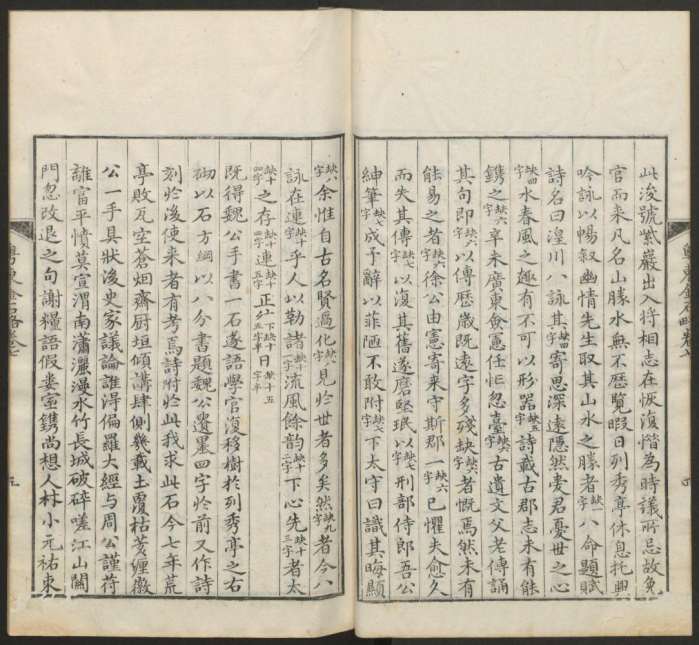 此浚號紫巖出入將相志在恢復惜為時議所忌故免
官而来凡名山勝水無不歷覽暇日列秀亭休息托興
吟詠以暢叙幽情先生取其山水之勝者缺一字八命題賦
詩名曰湟川八詠其缺四字寄思深遠隱然愛君憂世之心
缺四字水春風之趣有不可以形器缺五字詩載古郡志未有能
鐫之缺六字辛未廣東僉憲任忙忽臺缺六字古遺文父老傳誦
其句即缺六字以傳歷歲既遠字多殘缺缺六字者慨焉然未有
能易之者缺六字徐公由憲寄来守斯郡一缺六字已懼夫愈久
而失其傳缺七字以復其舊遂磨堅珉以缺七字刑部侍郎吾公
紳筆缺七字成予辭以菲陋不敢附缺六字下太守曰識其晦顯
缺六字余惟自古名賢過化缺六字見於世者多矣然缺九字者今八
詠在連缺十字乎人以勒諸缺十一字流風餘韵缺十二字下心先缺十三字者太
缺十四字之存缺十四字連缺十五字正缺下缺十五字年日缺十五字亭
既得魏公手書一石遂語學官復移樹於列秀亭之右
砌以石方綱以八分書題魏公遺墨四字於前又作詩
刻於後使来者有考焉詩附於此我求此石今七年荒
亭敗瓦空蒼烟齋厨垣傾講肆側幾載土覆枯菱纏徽
公一手具狀後史家議論誰淂偏羅大經與周公謹苻
離富平憤莫宣渭南瀟灑澡水竹長城破碎嗟江山關
門忽改退之句謝糧語假婁室鐫尚想人材小元祐東
粤東金石略卷七